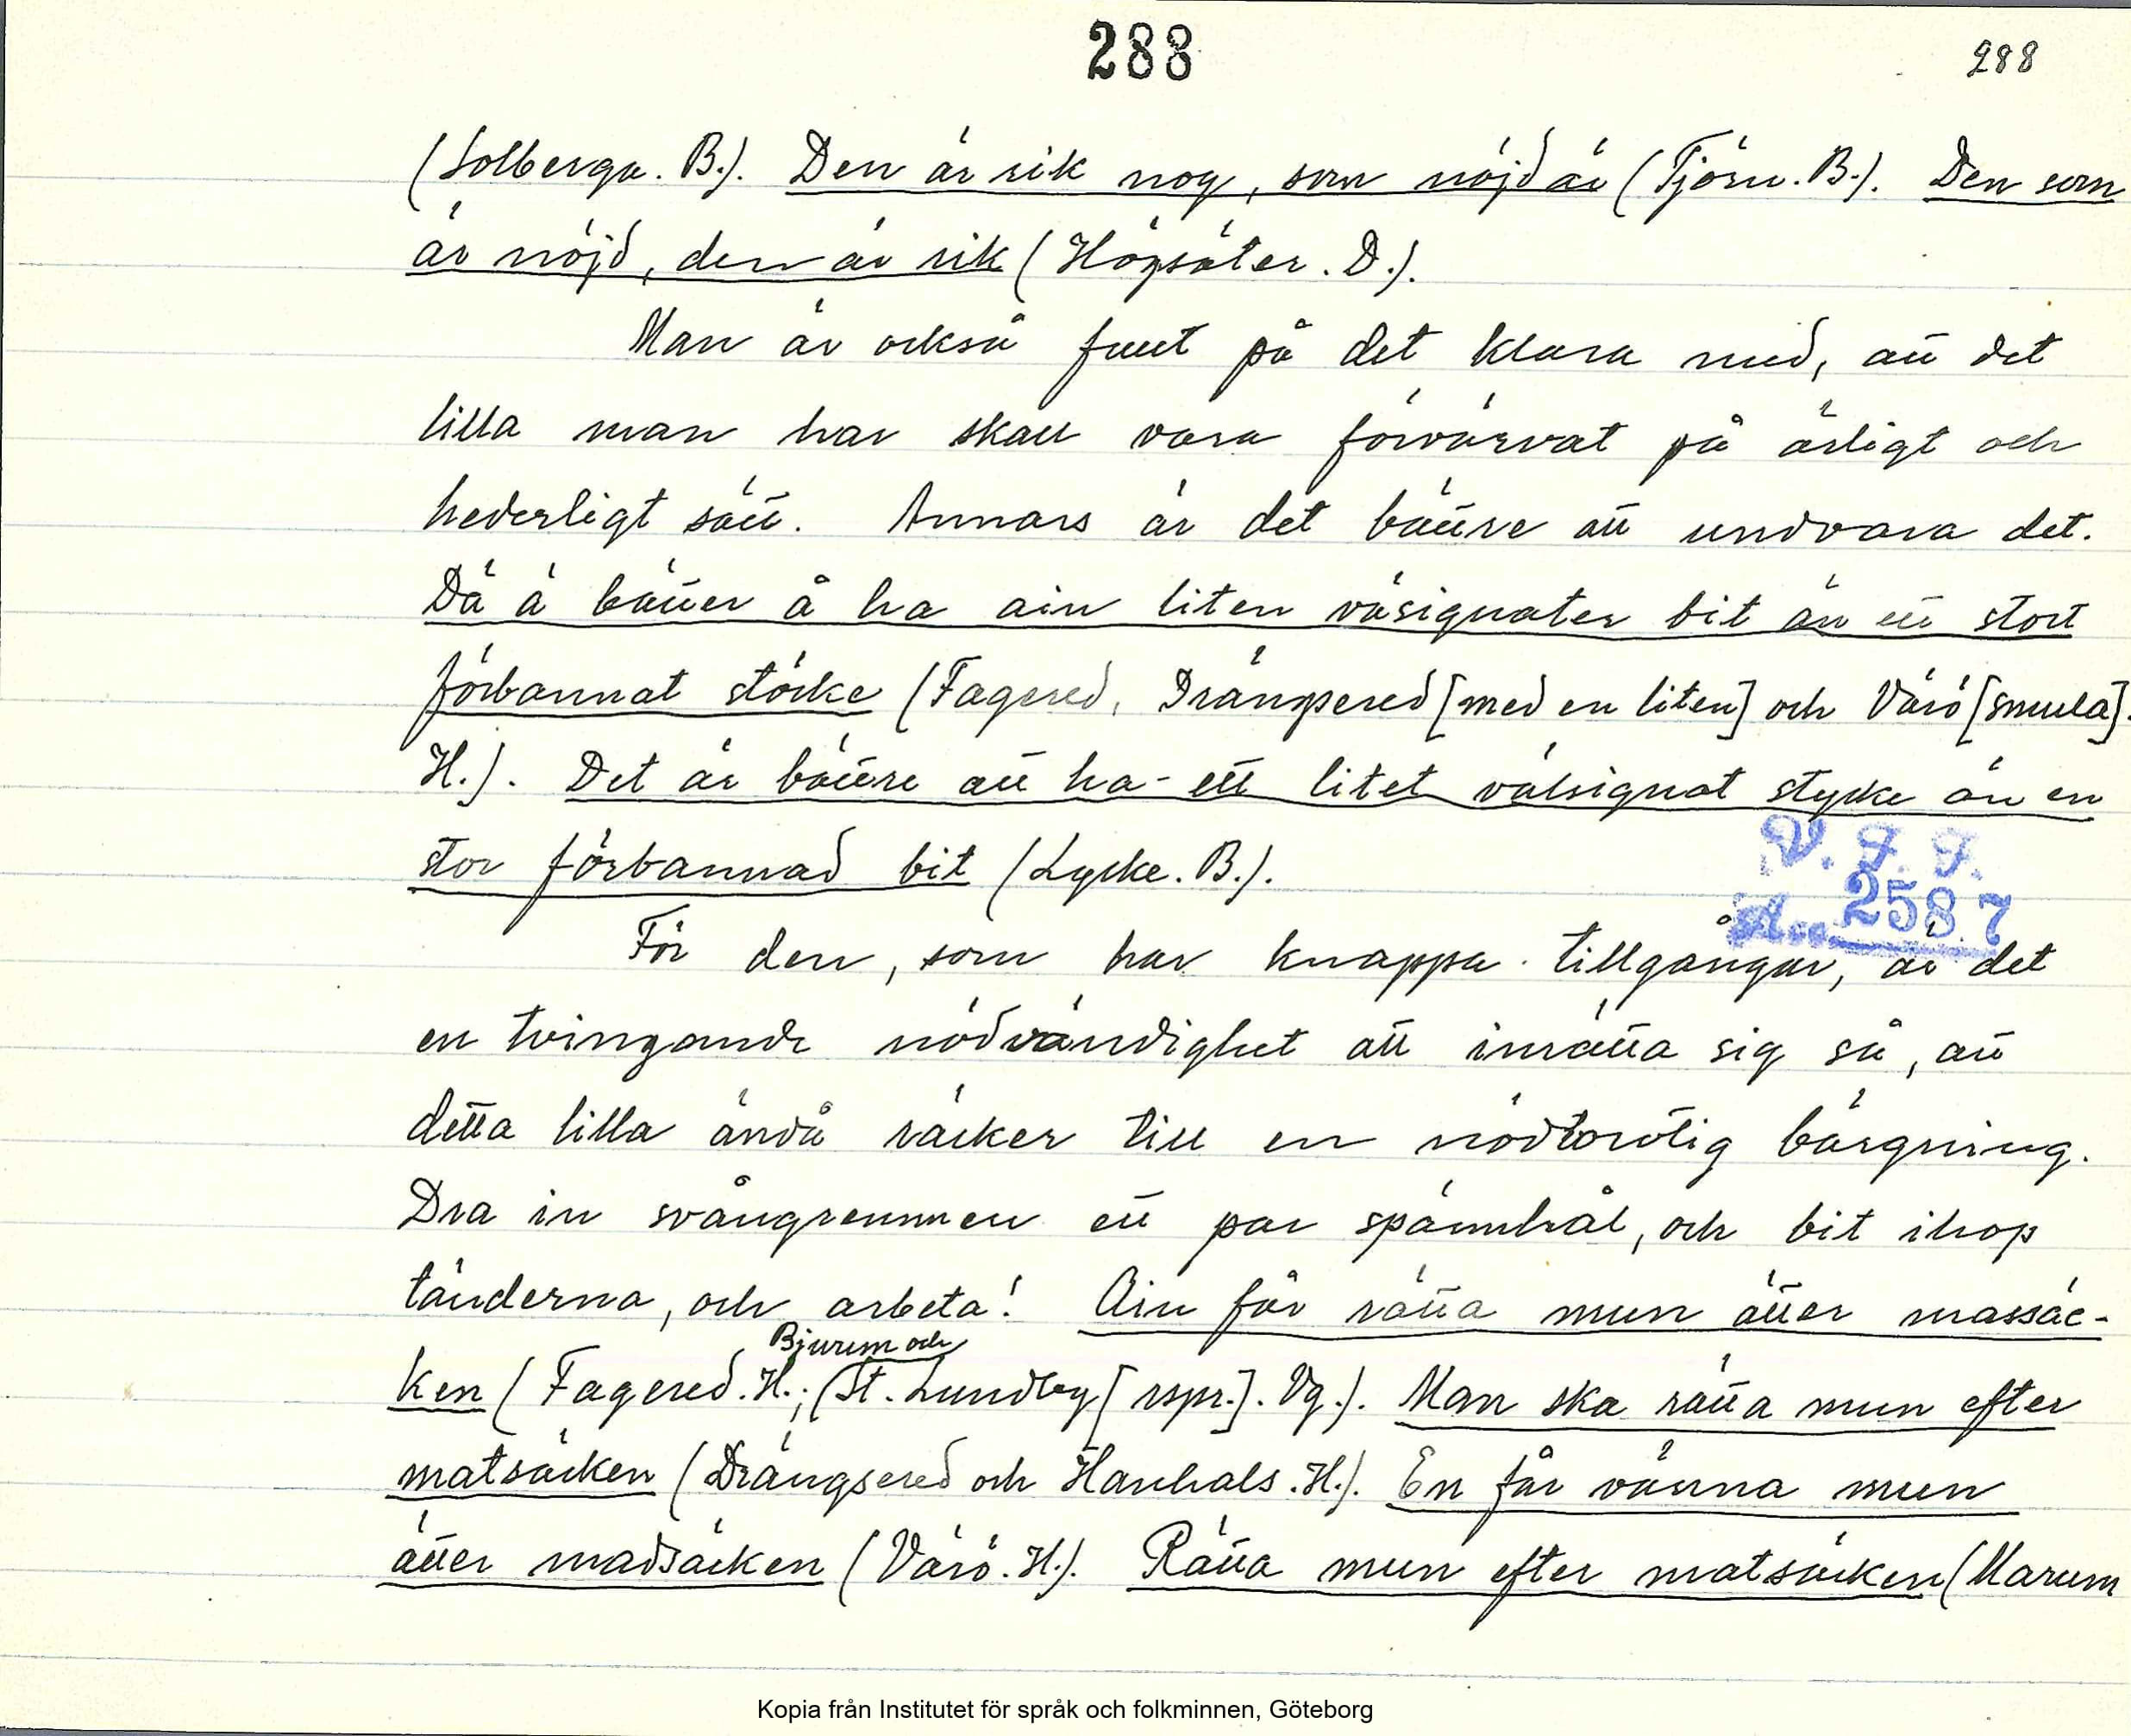 288 288
(Solberga. B.). Den är rik nog, som nöjd är (Tjörn. B.). Den som
är nöjd, den är rik (Högsäter. D.).
Man är också fullt på det klara med, att det
lilla man har skall vara förvärvat på ärligt och
hederligt sätt. Annars är det bättre att undvara det.
Dä ä bätter å ha ain liten väsignater bit än ett stort
förbannat störke (Fagered, Drängsered [med en liten] och Värö [smula].
H.). Det är bättre att ha ett litet välsignat stycke än en
stor förbannad bit (Lycke. B.).
V. F. F.
Acc. 2587
För den, som har knappa tillgångar, är det
en tvingande nödvändighet att inrätta sig så, att
detta lilla ändå räcker till en nödtorftig bärgning.
Dra in svångremmen ett par spännhål, och bit ihop
tänderna, och arbeta! Ain får rätta mun ätter massäc-
Bjurum och
ken (Fagered. H.; (St. Lundby [rspr.]. Vg.). Man ska rätta mun efter
matsäcken (Drängsered och Hanhals. H.). En får vänna mun
ätter madsäcken (Värö. H.). Rätta mun efter matsäcken (Marum
Kopia från Institutet för språk och folkminnen, Göteborg